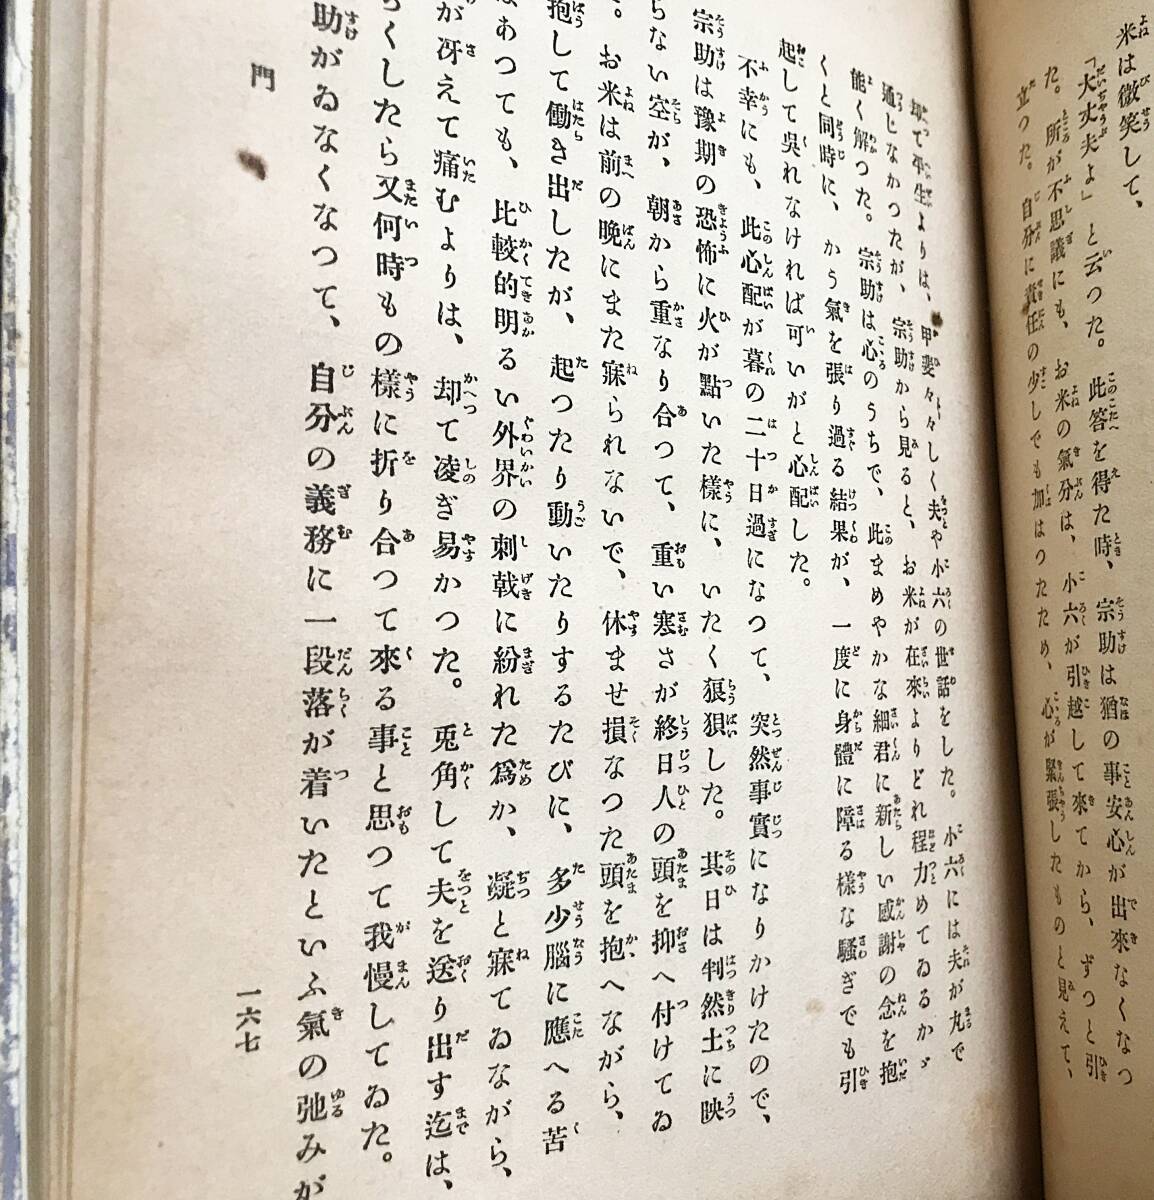 米は微笑して、
「大丈夫よ」と云つた。此答を得た時、宗助は猶の事安心が出來なくなつ
た。所が不思議にも、お米の氣分は、小六が引越して來てから、ずつと引
立つた。自分に責任の少しでも加はつたため、心が緊張したものと見えて、
却て平生よりは、甲斐々々しく夫や小六の世話をした。小六には夫が丸で
通じなかつたが、宗助から見ると、お米が在來よりどれ程力めてゐるかゞ
能く解つた。宗助は心のうちで、此まめやかな細君に新しい感謝の念を抱
くと同時に、かう氣を張り過る結果が、一度に身體に障る樣な騷ぎでも引
起して吳れなければ可いがと心配した。
不幸にも、此心配が暮の二十日過になつて、突然事實になりかけたので、
宗助は豫期の恐怖に火が點いた樣に、いたく狼狽した。其日は判然土に映
らない空が、朝から重なり合つて、重い寒さが終日人の頭を抑へ付けてゐ
。お米は前の晩にまた寐られないで、休ませ損なつた頭を抱へながら、
抱して働き出したが、起つたり動いたりするたびに、多少腦に應へる苦
はあつても、比較的明るい外界の刺戟に紛れた爲か、凝と寐てゐながら、
が冴えて痛むよりは、却て凌ぎ易かつた。兎角して夫を送り出す迄は、
らくしたら又何時もの樣に折り合つて來る事と思つて我慢してゐた。
助がゐなくなつて、自分の義務に一段落が着いたといふ氣の弛みが
門
一六七